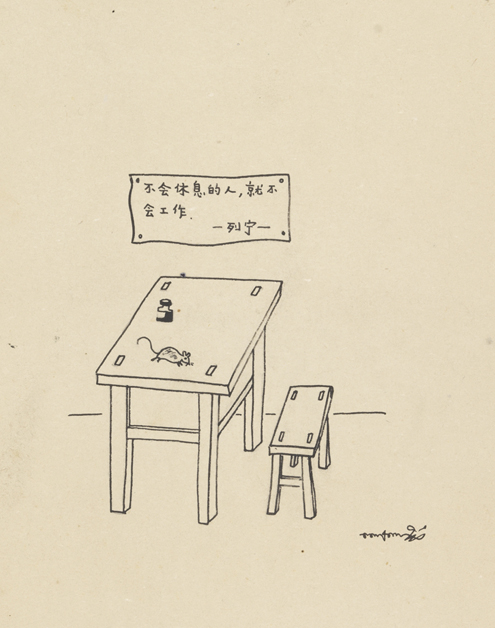 不会休息的人，就不
会工作．
—列宁—